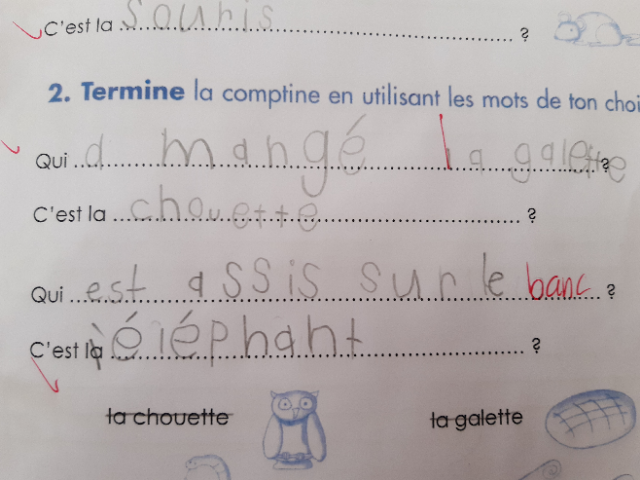 C'est la souris ?
2. Termine la comptine en utilisant les mots de ton choi
Qui a mangé la galette ?
C'est la chouette ?
Qui est assis sur le banc ?
C'est l'éléphant ?
la chouette
la galette